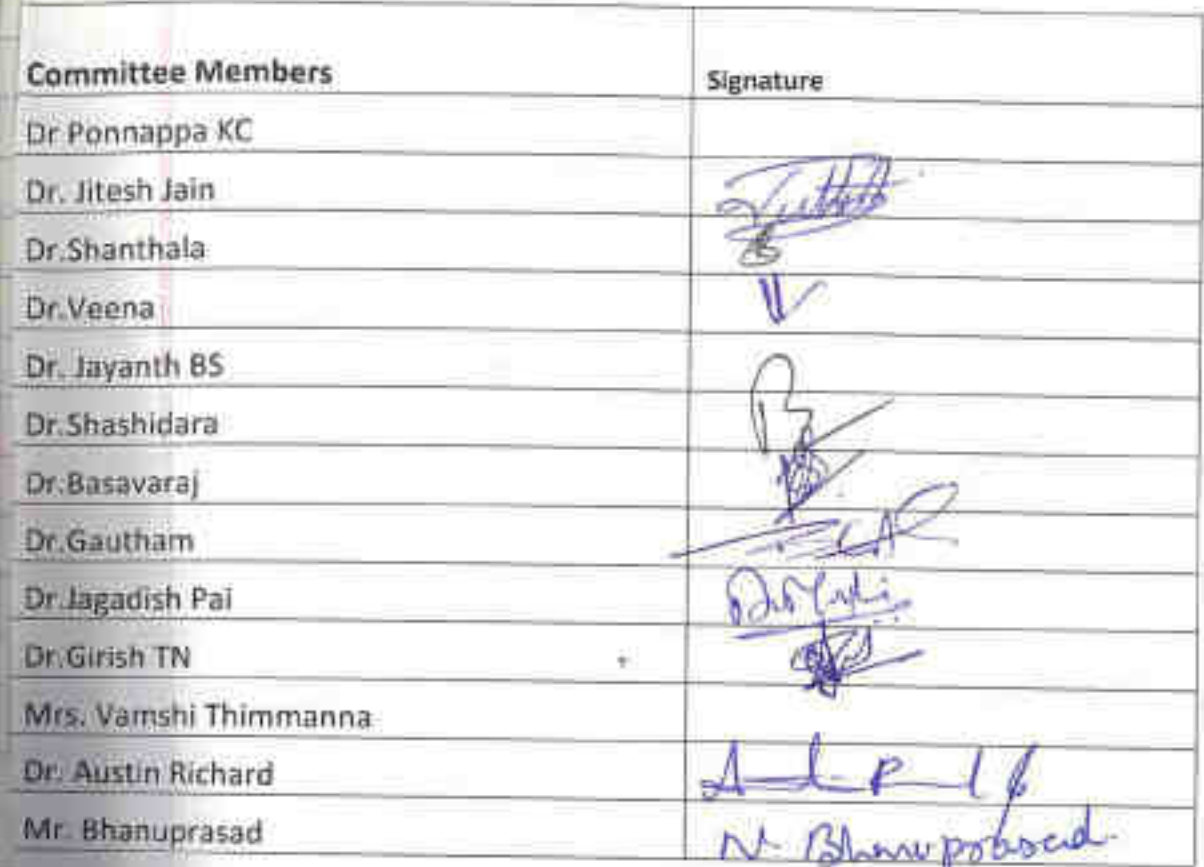 Committee Members Signature
Dr Ponnappa KC
Dr. Jitesh Jain
Dr.Shanthala
Dr.Veena
Dr. Jayanth BS
Dr.Shashidara
Dr.Basavaraj
Dr.Gautham
Dr.Jagadish Pai
Dr.Girish TN
Mrs. Vamshi Thimmanna
Dr. Austin Richard
Mr. Bhanuprasad N. Bhanuprasad